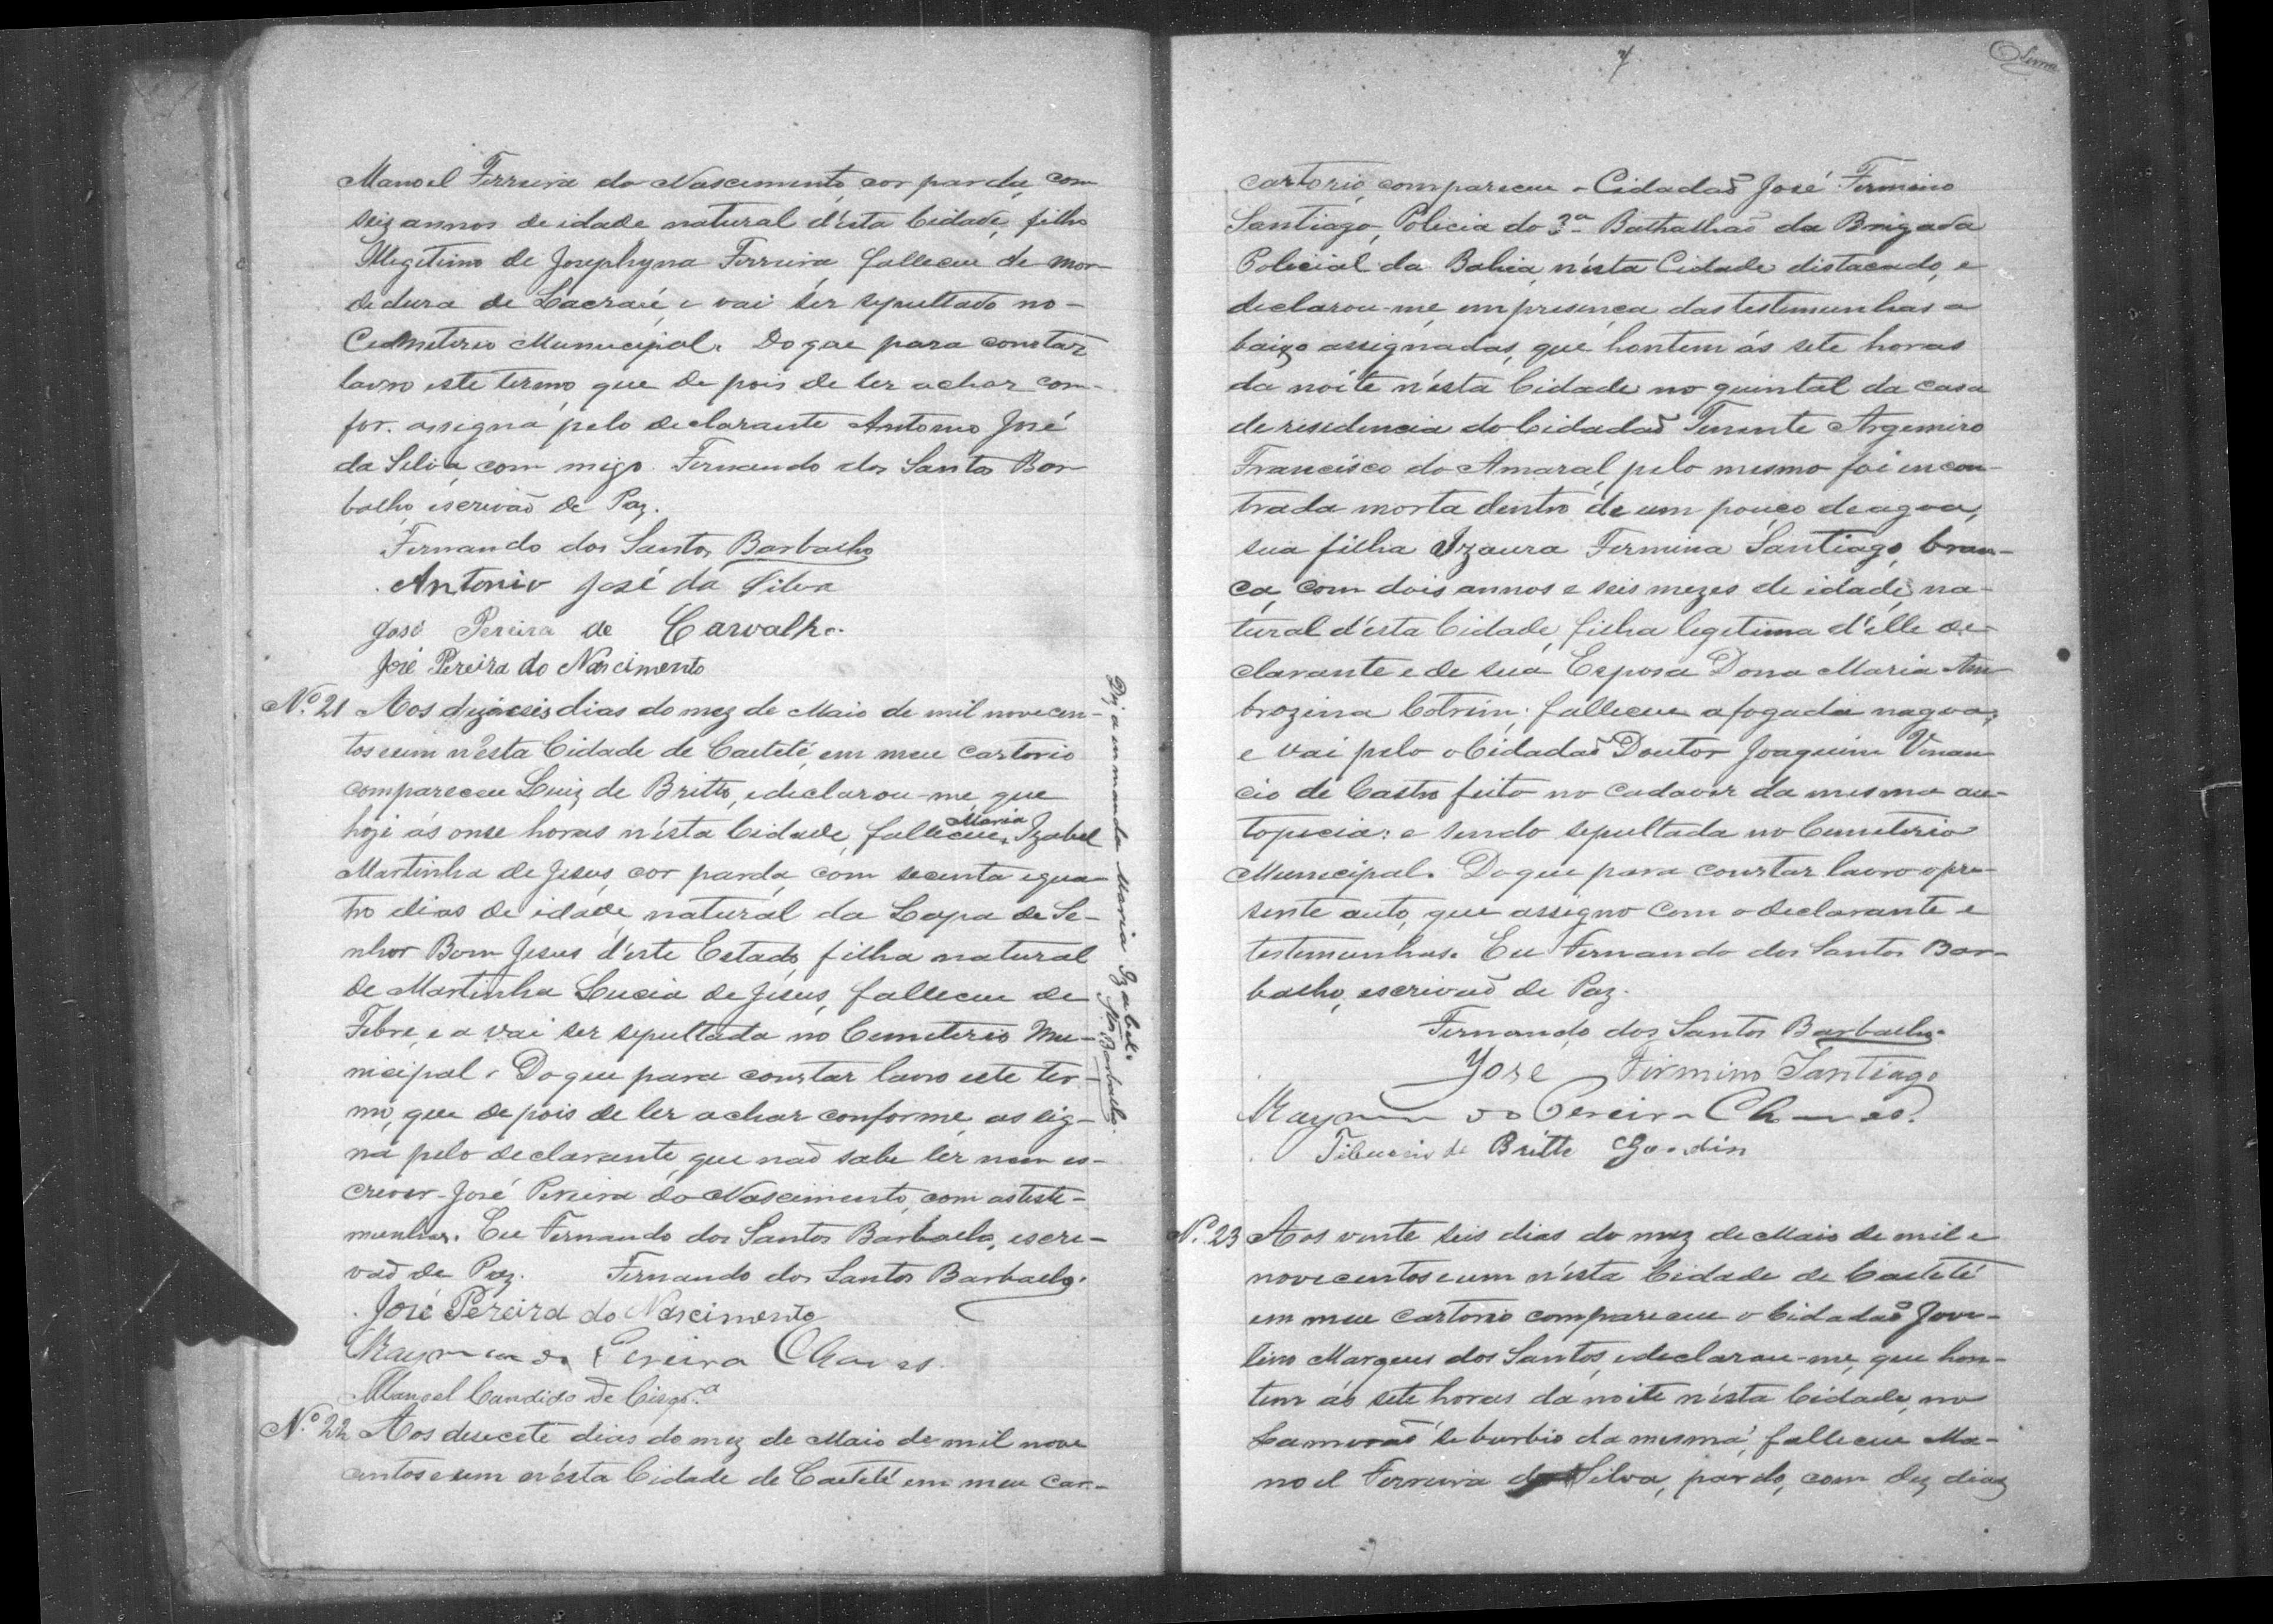 Manoel Ferreira do Nascimento, cor parda, com
seiz annos de idade natural d'ésta Cidade, filho
Illegitimo de Josephyna Ferreira, falleceu de mor-
dedura de Lacraú, e vai ser sepultado no-
Cemiterio Municipal. Do que para constar
lavro este termo, que de pois de ler achar con-
for. assigna pelo declarante Antonio José
da Silva, com migo. Fernando dos Santos Bar
balho, escrivaõ de Paz.
Fernando dos Santos Barbalho
Antonio José da Silva
José Pereira de Carvalho.
José Pereira do Nascimento
Nº. 21 Aos dezaseis dias do mez de Maio de mil novecen-
tos e um n'ésta Cidade de Caeteté, em meu cartorio
compareceu Luiz de Britto, e declarou-me, que
hoje ás onse horas n'ésta Cidade, falleceu, Maria Izabel
Martinha de Jesus, cor parda, com secenta e qua-
tro dias de idade, natural da Lapa de Se-
nhor Bom Jesus d'éste Estado, filha natural
de Martinha Lucia de Jesus, falleceu de
Febre, e a vai ser sepultada no Cemiterio Mu-
nicipal. Do que para constar lavro este ter-
mo, que de pois de ler achar conforme, as sig-
na pelo declarante, que naõ sabe ler nem es-
crever- José Pereira do Nascimento, com as teste-
munhas. Eu Fernando dos Santos Barbalho, escri-
vaõ de Paz. Fernando dos Santos Barbalho.
José Pereira do Nascimento
Raymundo Pereira Chaves.
Manoel Candido de
Nº. 22 Aos desecete dias do mez de Maio de mil nove
centos e um n'ésta Cidade de Caeteté em meu car-
Maria Izabel.
Barbalho.
4
cartorio, compareceu o Cidadaõ José Fermino
Santiago, Policia do 3ª Bathalhaõ da Brigada
Policial da Bahia, n'ésta Cidade distacado, e
declarou-me, em presença das testemunhas a
baixo assignadas, que hontem ás sete horas
da noite n'ésta Cidade no quintal da casa
de residencia do Cidadaõ Tenente Argemiro
Francisco do Amaral, pelo mesmo foi encon-
trada morta dentro de um pouço de agoa,
sua filha Izaura Fermina Santiago, bran-
ca, com dois annos e seis mezes de idade, na-
tural d'ésta Cidade, filha legetima d'élle de-
clarante e de sua Esposa Dona Maria Am
brozina Cotrim; falleceu afogada nagoa;
e vai pelo o Cidadaõ Doutor Joaquim Venan
cio de Castro feito no cadaver da mesma au-
topecia: e sendo sepultada no Cemiterio
Municipal. Do que para constar lavro o pre-
sente auto, que assigno com o declarante e
testemunhas. Eu Fernando dos Santos Bar-
balho, escrivaõ de Paz.
Fernando dos Santos Barbalho.
José Firmino Santiago
Raymundo Pereira Chaves.
Tiburcio de Britto Gondin
Nº. 23 Aos vinte seis dias do mez de Maio de mil e
novecentos e um n'ésta Cidade de Caeteté
em meu cartorio compareceu o Cidadaõ Jove-
lino Marques dos Santos, e declarou-me, que hon-
tem ás sete horas da noite n'ésta Cidade, no
suburbio da mesma, falleceu Ma-
noel Ferreira da Silva, pardo, com dez dias